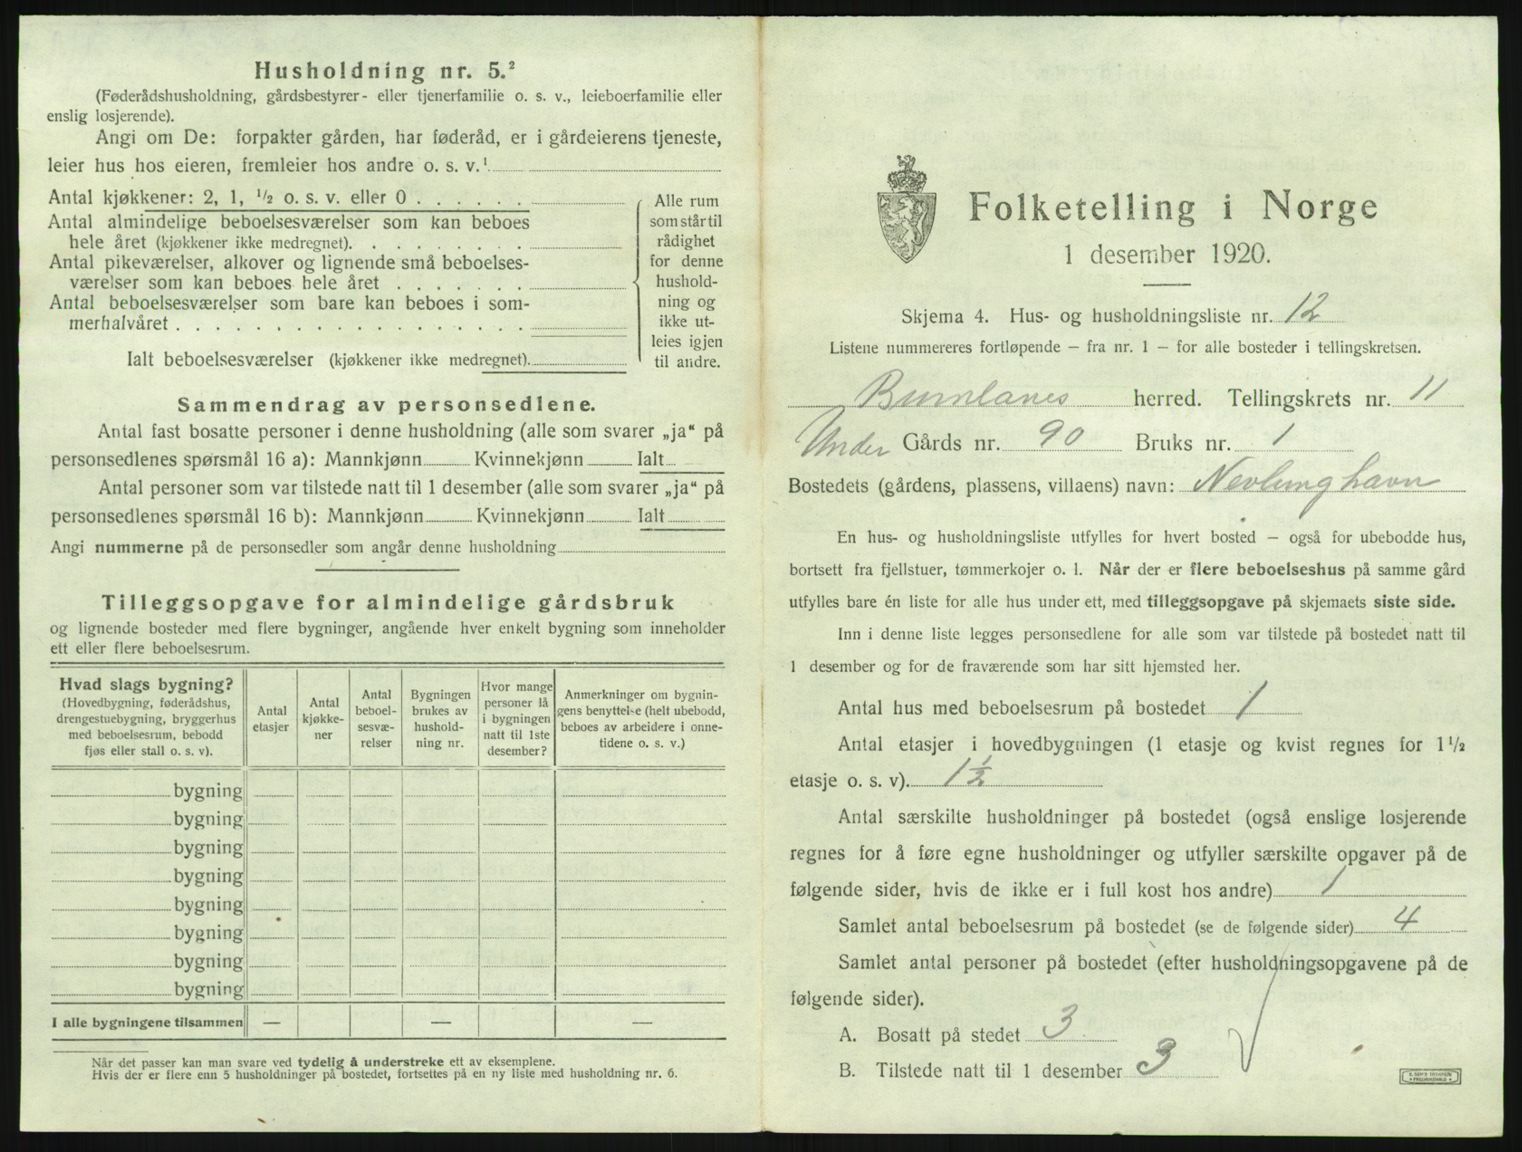 Husholdning nr. 5.²
(Føderådshusholdning, gårdsbestyrer- eller tjenerfamilie o. s. v., leieboerfamilie eller
enslig losjerende).
Angi om De: forpakter gården, har føderåd, er i gårdeierens tjeneste,
leier hus hos eieren, fremleier hos andre o. s. v.¹
Antal kjøkkener: 2, 1, ½ o. s. v. eller 0
Antal almindelige beboelsesværelser som kan beboes
hele året (kjøkkener ikke medregnet).
Antal pikeværelser, alkover og lignende små beboelses-
værelser som kan beboes hele året
Antal beboelsesværelser som bare kan beboes i som-
merhalvåret
Ialt beboelsesværelser (kjøkkener ikke medregnet).
Alle rum
som står til
rådighet
for denne
hushold-
ning og
ikke ut-
leies igjen
til andre.
Sammendrag av personsedlene.
Antal fast bosatte personer i denne husholdning (alle som svarer „ja“ på
personsedlenes spørsmål 16 a): Mannkjønn Kvinnekjønn Ialt
Antal personer som var tilstede natt til 1 desember (alle som svarer „ja“ på
personsedlenes spørsmål 16 b): Mannkjønn Kvinnekjønn Ialt
Angi nummerne på de personsedler som angår denne husholdning
Tilleggsopgave for almindelige gårdsbruk
og lignende bosteder med flere bygninger, angående hver enkelt bygning som inneholder
ett eller flere beboelsesrum.
Hvad slags bygning?
(Hovedbygning, føderådshus,
drengestuebygning, bryggerhus
med beboelsesrum, bebodd
fjøs eller stall o. s. v).
Antal
etasjer
Antal
kjøkke-
ner
Antal
beboel-
sesvæ-
relser
Bygningen
brukes av
hushold-
ning nr.
Hvor mange
personer lå
i bygningen
natt til 1ste
desember?
Anmerkninger om bygnin-
gens benyttelse (helt ubebodd,
beboes av arbeidere i onne-
tidene o. s. v.)
bygning
bygning
bygning
bygning
bygning
bygning
bygning
bygning
I alle bygningene tilsammen — — —
Når det passer kan man svare ved tydelig å understreke ett av eksemplene.
Hvis der er flere enn 5 husholdninger på bostedet, fortsettes på en ny liste med husholdning nr. 6.
Folketelling i Norge
1 desember 1920.
Skjema 4. Hus- og husholdningsliste nr. 12
Listene nummereres fortløpende — fra nr. 1 — for alle bosteder i tellingskretsen.
Brunlanes herred. Tellingskrets nr. 11
Under Gårds nr. 90 Bruks nr. 1
Bostedets (gårdens, plassens, villaens) navn: Nevlunghavn
En hus- og husholdningsliste utfylles for hvert bosted — også for ubebodde hus,
bortsett fra fjellstuer, tømmerkojer o. l. Når der er flere beboelseshus på samme gård
utfylles bare én liste for alle hus under ett, med tilleggsopgave på skjemaets siste side.
Inn i denne liste legges personsedlene for alle som var tilstede på bostedet natt til
1 desember og for de fraværende som har sitt hjemsted her.
Antal hus med beboelsesrum på bostedet 1
Antal etasjer i hovedbygningen (1 etasje og kvist regnes for 1½
etasje o. s. v). 1½
Antal særskilte husholdninger på bostedet (også enslige losjerende
regnes for å føre egne husholdninger og utfyller særskilte opgaver på de
følgende sider, hvis de ikke er i full kost hos andre) 1
Samlet antal beboelsesrum på bostedet (se de følgende sider) 4
Samlet antal personer på bostedet (efter husholdningsopgavene på de
følgende sider).
A. Bosatt på stedet 3
B. Tilstede natt til 1 desember 3